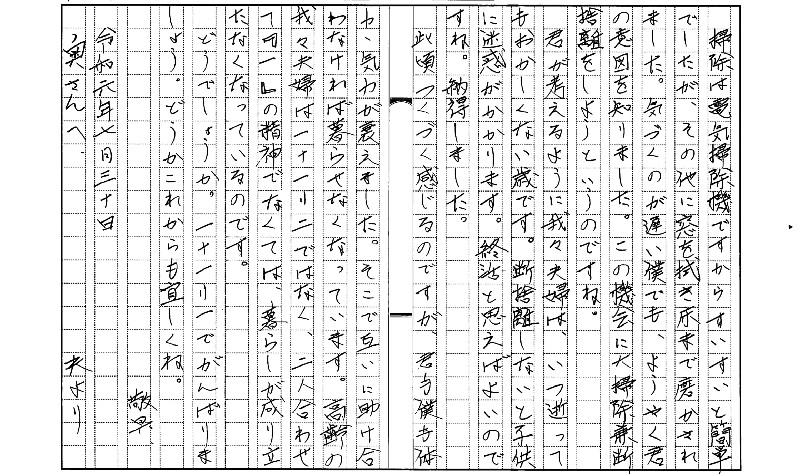 掃除は電気掃除機ですからすいすいと簡単
でしたが、その他に窓を拭き床まで磨かされ
ました。気づくのが遅い僕でも、ようやく君
の意図を知りました。この機会に大掃除兼断
捨離をしようというのですね。
君が考えるように我々夫婦は、いつ逝って
もおかしくない歳です。断捨離しないと子供
に迷惑がかかります。終活と思えばよいので
すね。納得しました。
此頃つくづく感じるのですが、君も僕も体
力、気力が衰えました。そこで互いに助け合
わなければ暮らせなくなっています。高齢の
我々夫婦は一+一=二ではなく、二人合わせ
て『一』の精神でなくては、暮らしが成り立
たなくなっているのです。
どうでしょうか。一+一=一でがんばりま
しょう。どうかこれからも宜しくね。
敬具
令和元年七月三十日
夫より
奥さんへ、